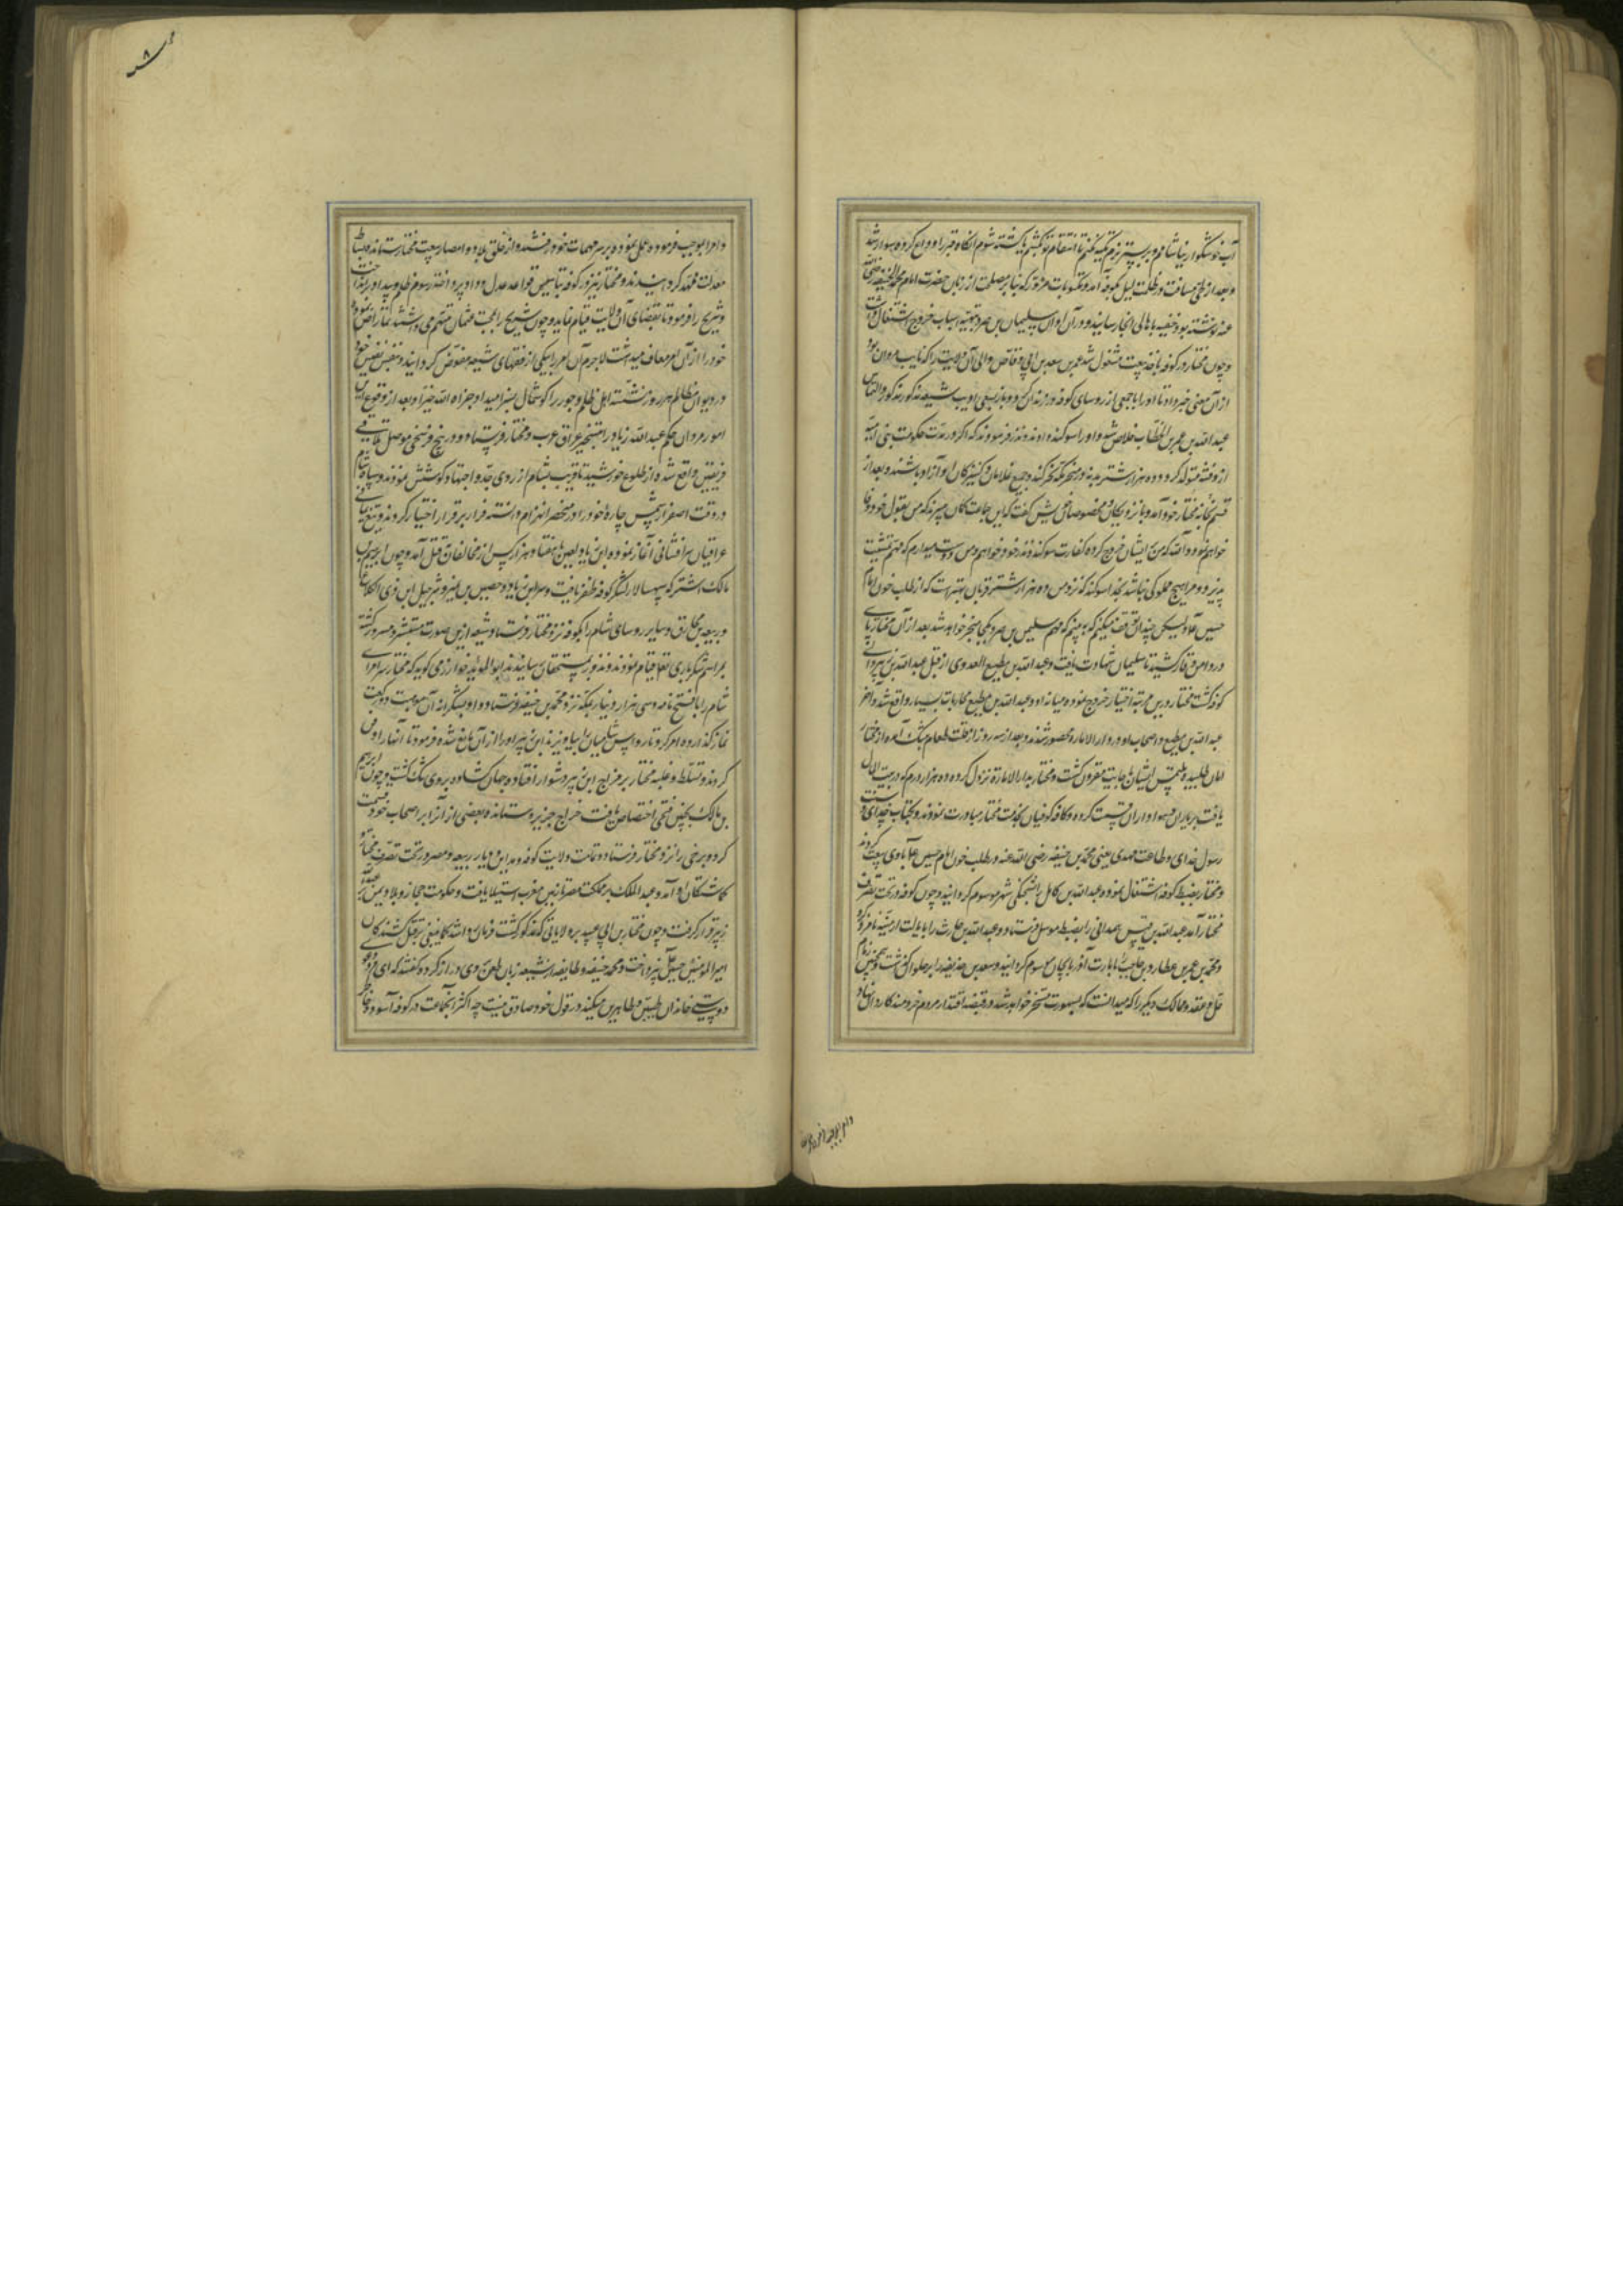 آب خوشگوار نیاشامم و بر بستر نرم تکیه نکنم تا انتقام تو بکشم یا کشته شوم انگاه قبر را وداع کرده سوار شد
و بعد از طی مسافت در ظلمت لیل بکوفه آمد و مکتوبات مزور که بنا بر مصلحت از زبان حضرت امام محمد حنیفه رضی الله
عنه نوشته بود خفیه باهالی انجا رسانید و در آن اوان سلیمان بن صرد بتهیه اسباب خروج اشتغال داشت
و چون مختار در کوفه باخذ بیعت مشغول شد عمر بن سعد بن ابی وقاص والی آن ولایت را که نایب مروان بود
از آن معنی خبر داد تا او را با جمعی از روسای کوفه در زندان کرد و باز بسعی شیعه مذکور و التماس
عبد الله بن عمر بن الخطاب خلاص شد و او را سوکند دادند و نذر فرمودند که اکر در مدت حکومت بنی امیه
از و فتنه متولد کردد ده هزار شتر بدنه در منحر مکه نحر کند و جمیع غلامان و کنیزکان او آزاد باشند و بعد از
قسم بخانه مختار خود آمد و با نزدیکان و مخصوصان خویش کفت که این جماعت کمان میبرند که من بقول خود وفا
خواهم نمود و الله که من بر ایشان خروج کرده کفارت سوکند و نذر خود خواهم و من دوست میدارم که مهم تمشیت
پذیرد و مرا هیچ مملوکی نباشد بخدا سوکند که نزد من ده هزار شتر قربان بهتر است که از طلب خون امام
حسین علیه لیکن چندان توقف میکنم که ببینم که مهم سلیمن بن صرد بکجا منجر خواهد شد بعد از آن مختار پای
در دامن وقار کشید تا سلیمان شهادت یافت و عبد الله بن مطیع العدوی از قبل عبد الله بن زبیر والی
کوفه کشت مختار درین مرتبه اختیار خروج نموده میانه او و عبد الله بن مطیع محاربات بسیار واقع شد و آخر
عبد الله بن مطیع و اصحاب او در دار الاماره محصور شدند و بعد از سه روز از قلت طعام بتنک آمده از مختار
امان طلبیده ملتمس ایشان باجابت مقرون کشت و مختار بدار الاماره نزول کرده ده هزار درم که در بیت المال
یافت بر یاران و هواداران قسمت کرده و کافه کوفیان بخدمت مختار مبادرت نمودند و بکتاب خدای و سنت
رسول خدای و طاعت مهدی یعنی محمد بن حنیفه رضی الله عنه و طلب خون امام حسین علیه با وی بیعت کردند
و مختار بضبط کوفه اشتغال نموده و عبد الله بن کامل را بشحنکی شهر موسوم کردانید و چون کوفه در تحت تصرف
مختار آمد عبد الله بن قیس همدانی را بضبط موصل فرستاد و عبد الله بن حارث را بایالت ارمنیه نامزد کرد
و محمد بن عمیر بن عطارد بن حاجب را بامارت آذربایجان موسوم کردانید و سعد بن حذیفه را بر حلوان کماشت و همچنین زمام
حل و عقد و ممالک دیکر را که میدانست که بسهولت مسخر خواهد شد در قبضه اقتدار مردم خردمند کاردان نهاد
و امرا بموجب فرموده عمل نموده بر سر مهمات خود رفتند و از خلق بلاد و امصار بیعت مختار ستانده بساط
معدلت ممهد کردانیدند و مختار نیز در کوفه بتأسیس قواعد عدل و داد پرداخته رسوم ظلم و بیداد برانداخت
و شریح را فرمود تا بقضای آن ولایت قیام نماید و چون شریح را بمحبت عثمان متهم می داشتند تمارض نموده
خود را از آن امر معاف میداشت لاجرم آن امر را بیکی از فقهای شیعه مفوض کردانید و بنفس نفیس خود
در دیوان مظالم هر روز نشسته اهل ظلم و جور را کوشمال بسزا میداد جزاه الله خیرا و بعد از وقوع این
امور مروان حکم عبد الله زیاد را بتسخیر عراق عرب و مختار فرستاد و در پنج فرسخی موصل تلاقی
فریقین واقع شده از طلوع خورشید تا قریب بشام از روی جد و اجتهاد کوشش نمودند و سپاه شام
در وقت اصفرار شمس چاره خود را در منحصر انهزام دانسته فرار بر قرار اختیار کردند و تیغ یمانی
عراقیان سرافشانی آغاز نموده ابن زیاد لعین با هفتاد هزار کس از مخالفان بقتل آمد و چون ابرهیم بن
مالک اشتر که سپهسالار لشکر کوفه ظفر یافت و سر ابن زیاد و حصین بن نمیر و شرحبیل ابن ذی الکلاع
و ربیعه بن مخارق و سایر روسای شام را بکوفه نزد مختار فرستاد و شیعه از ین صورت مستبشر و مسرور کشته
بمراسم شکر باری تعالی قیام نمودند و نذور بمستحقان رسانیدند ابو الموید خوارزمی کوید که مختار سر امرای
شام را با فتح نامه و سی هزار دینار بمکه نزد محمد بن حنیفه فرستاد و او بشکرانه آن موهبت دو رکعت
نماز کذارده امر کرد تا رواس شامیان را بیاویزند ابن زبیر او را از آن مانع شده فرمود تا آنها را دفن
کردند و تسلط و غلبه مختار بر مزاج ابن زبیر دشوار افتاده جهان کشاده بر وی تنک کشت و چون ابرهیم
بن مالک بچنین فتحی اختصاص یافت خراج جزیره ستانده بعضی از آنرا بر اصحاب خود قسمت
کرد و برخی را نزد مختار فرستاد و تمامت ولایت کوفه و مداین و دیار ربیعه و مصر در تحت تصرف مختار و
کماشتکان او آمد و عبد الملک بر مملکت مصر تا زمین مغرب استیلا یافت و حکومت حجاز و بلاد یمن بر عبد الله
زبیر قرار کرفت و چون مختار بن ابی عبید بر ولایاتی که مذکور کشت فرمان روا شد کما ینبغی بقتل کشندکان
امیر المومنین حسین علیه نپرداخت و محمد حنیفه و طایفه از شیعه زبان طعن بر وی دراز کرده کفتند که ای مرد دعوی
دوستی خاندان طیبین و طاهرین میکند در قول خود صادق نیست چه اکثر آنجماعت در کوفه آسوده خاطر
و امرا بموجب فرموده